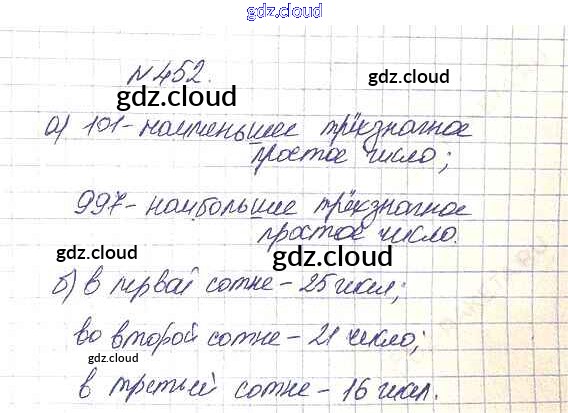 gdz.cloud
№ 452.
gdz.cloud gdz.cloud
а) 101 - наименьшее трёхзначное
gdz.cloud
простое число;
997 - наибольшее трёхзначное
простое число.
gdz.cloud gdz.cloud
б) в первой сотне - 25 чисел;
во второй сотне - 21 число;
gdz.cloud
в третьей сотне - 16 чисел.
gdz.cloud